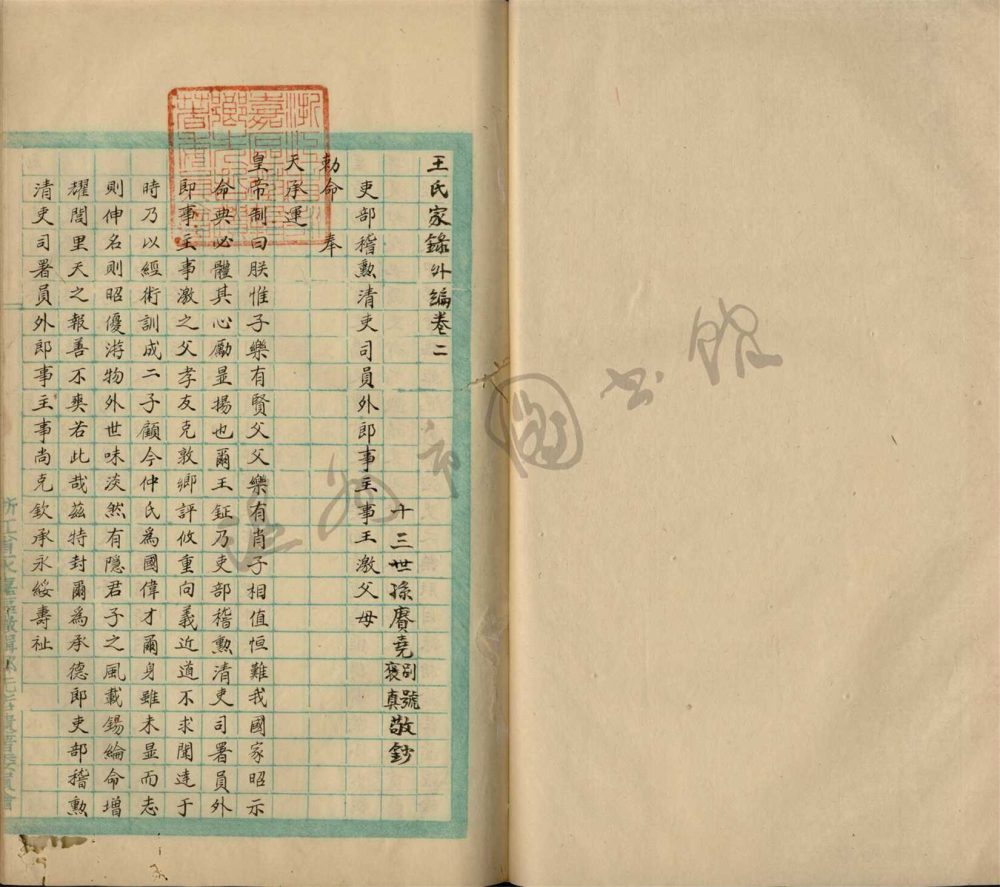 王氏家錄外編卷二
十三世孫賡堯別號褱真敬鈔
吏部稽勲清吏司員外郎事主事王激父母
勅命　奉
天承運
皇帝制曰朕惟子樂有賢父父樂有肖子相值恒難我國家昭示
命典必體其心勵显揚也爾王鉦乃吏部稽勲清吏司署員外
郎事主事激之父孝友克敦鄉評攸重向義近道不求聞達于
時乃以經術訓成二子顧今仲氏為國偉才爾身雖未显而志
則伸名則昭優游物外世味淡然有隱君子之風載錫綸命增
耀閭里天之報善不爽若此哉茲特封爾為承德郎吏部稽勲
清吏司署員外郎事主事尚克欽承永綏壽祉
溫州市圖書館